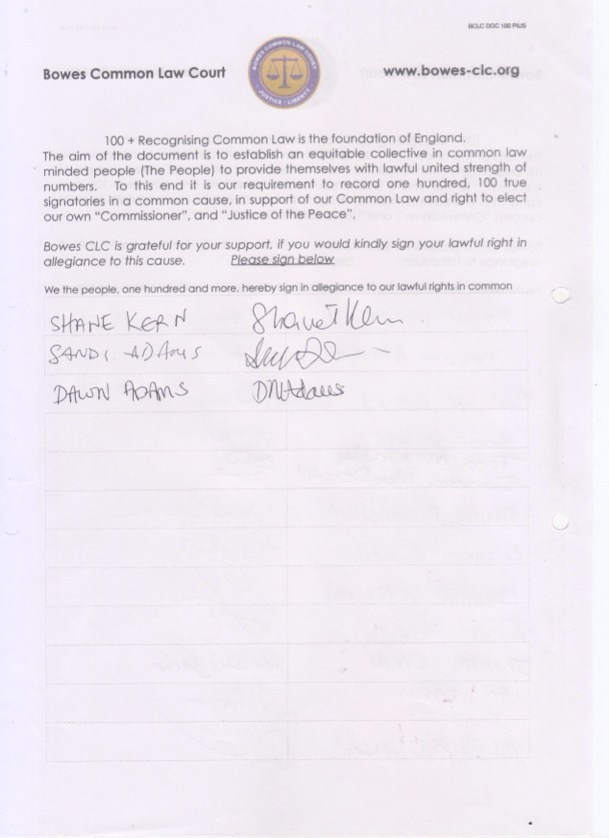 BCLC DOC 100 PLUS
Bowes Common Law Court
BOWES COMMON LAW COURT
JUSTICE - LIBERTY
www.bowes-clc.org
100 + Recognising Common Law is the foundation of England.
The aim of the document is to establish an equitable collective in common law
minded people (The People) to provide themselves with lawful united strength of
numbers. To this end it is our requirement to record one hundred, 100 true
signatories in a common cause, in support of our Common Law and right to elect
our own “Commissioner”, and “Justice of the Peace”.
Bowes CLC is grateful for your support, if you would kindly sign your lawful right in
allegiance to this cause. Please sign below
We the people, one hundred and more, hereby sign in allegiance to our lawful rights in common
SHANE KERN Shane T Kern
SANDI ADAMS
DAWN ADAMS DNAdams